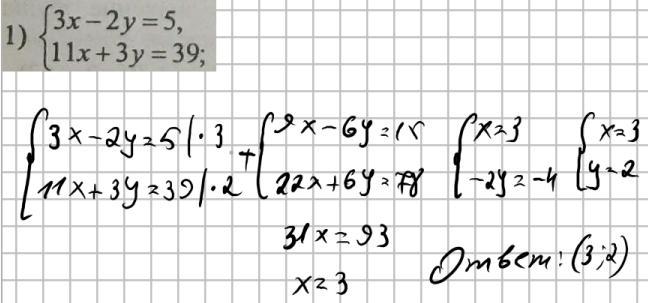 1) {3x − 2y = 5,
11x + 3y = 39;
{3x − 2y = 5 | · 3
11x + 3y = 39 | · 2
+ {9x − 6y = 15
22x + 6y = 78
31x = 93
x = 3
{x = 3
−2y = −4
{x = 3
y = 2
Ответ: (3; 2)